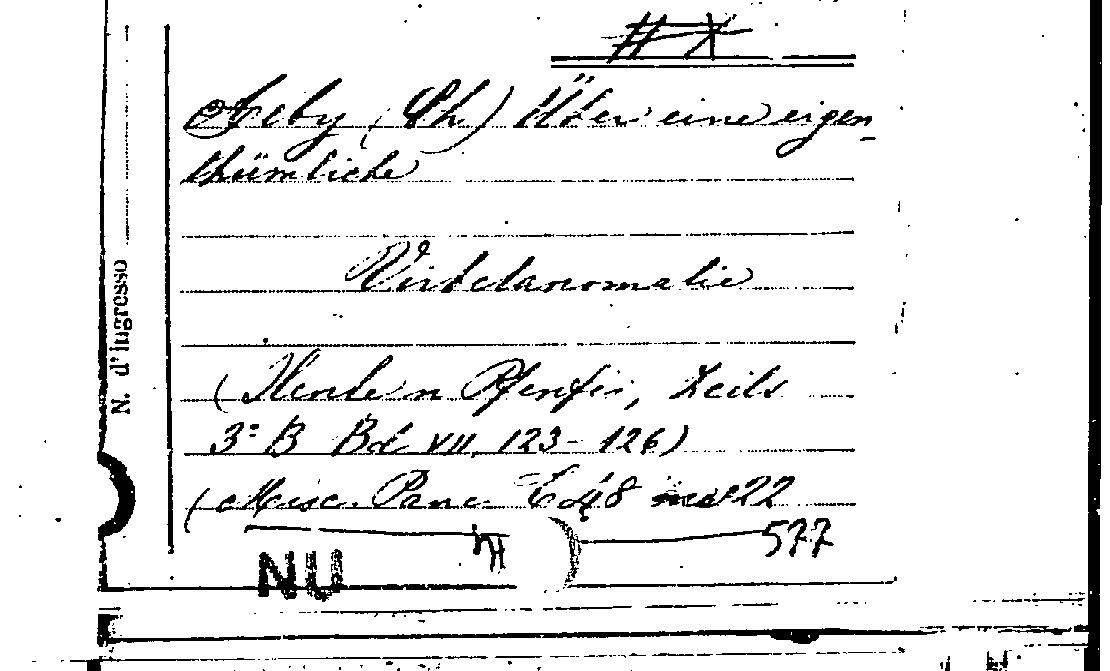 Aeby (Ch.) Über eine eigen-
thümliche
Wirbelanomalie
(Henle n Pfenfer, Zeits
3ª B Bd VII, 123-126)
(Misc. Panc. E 48 22
577
NU
N. d'ingresso